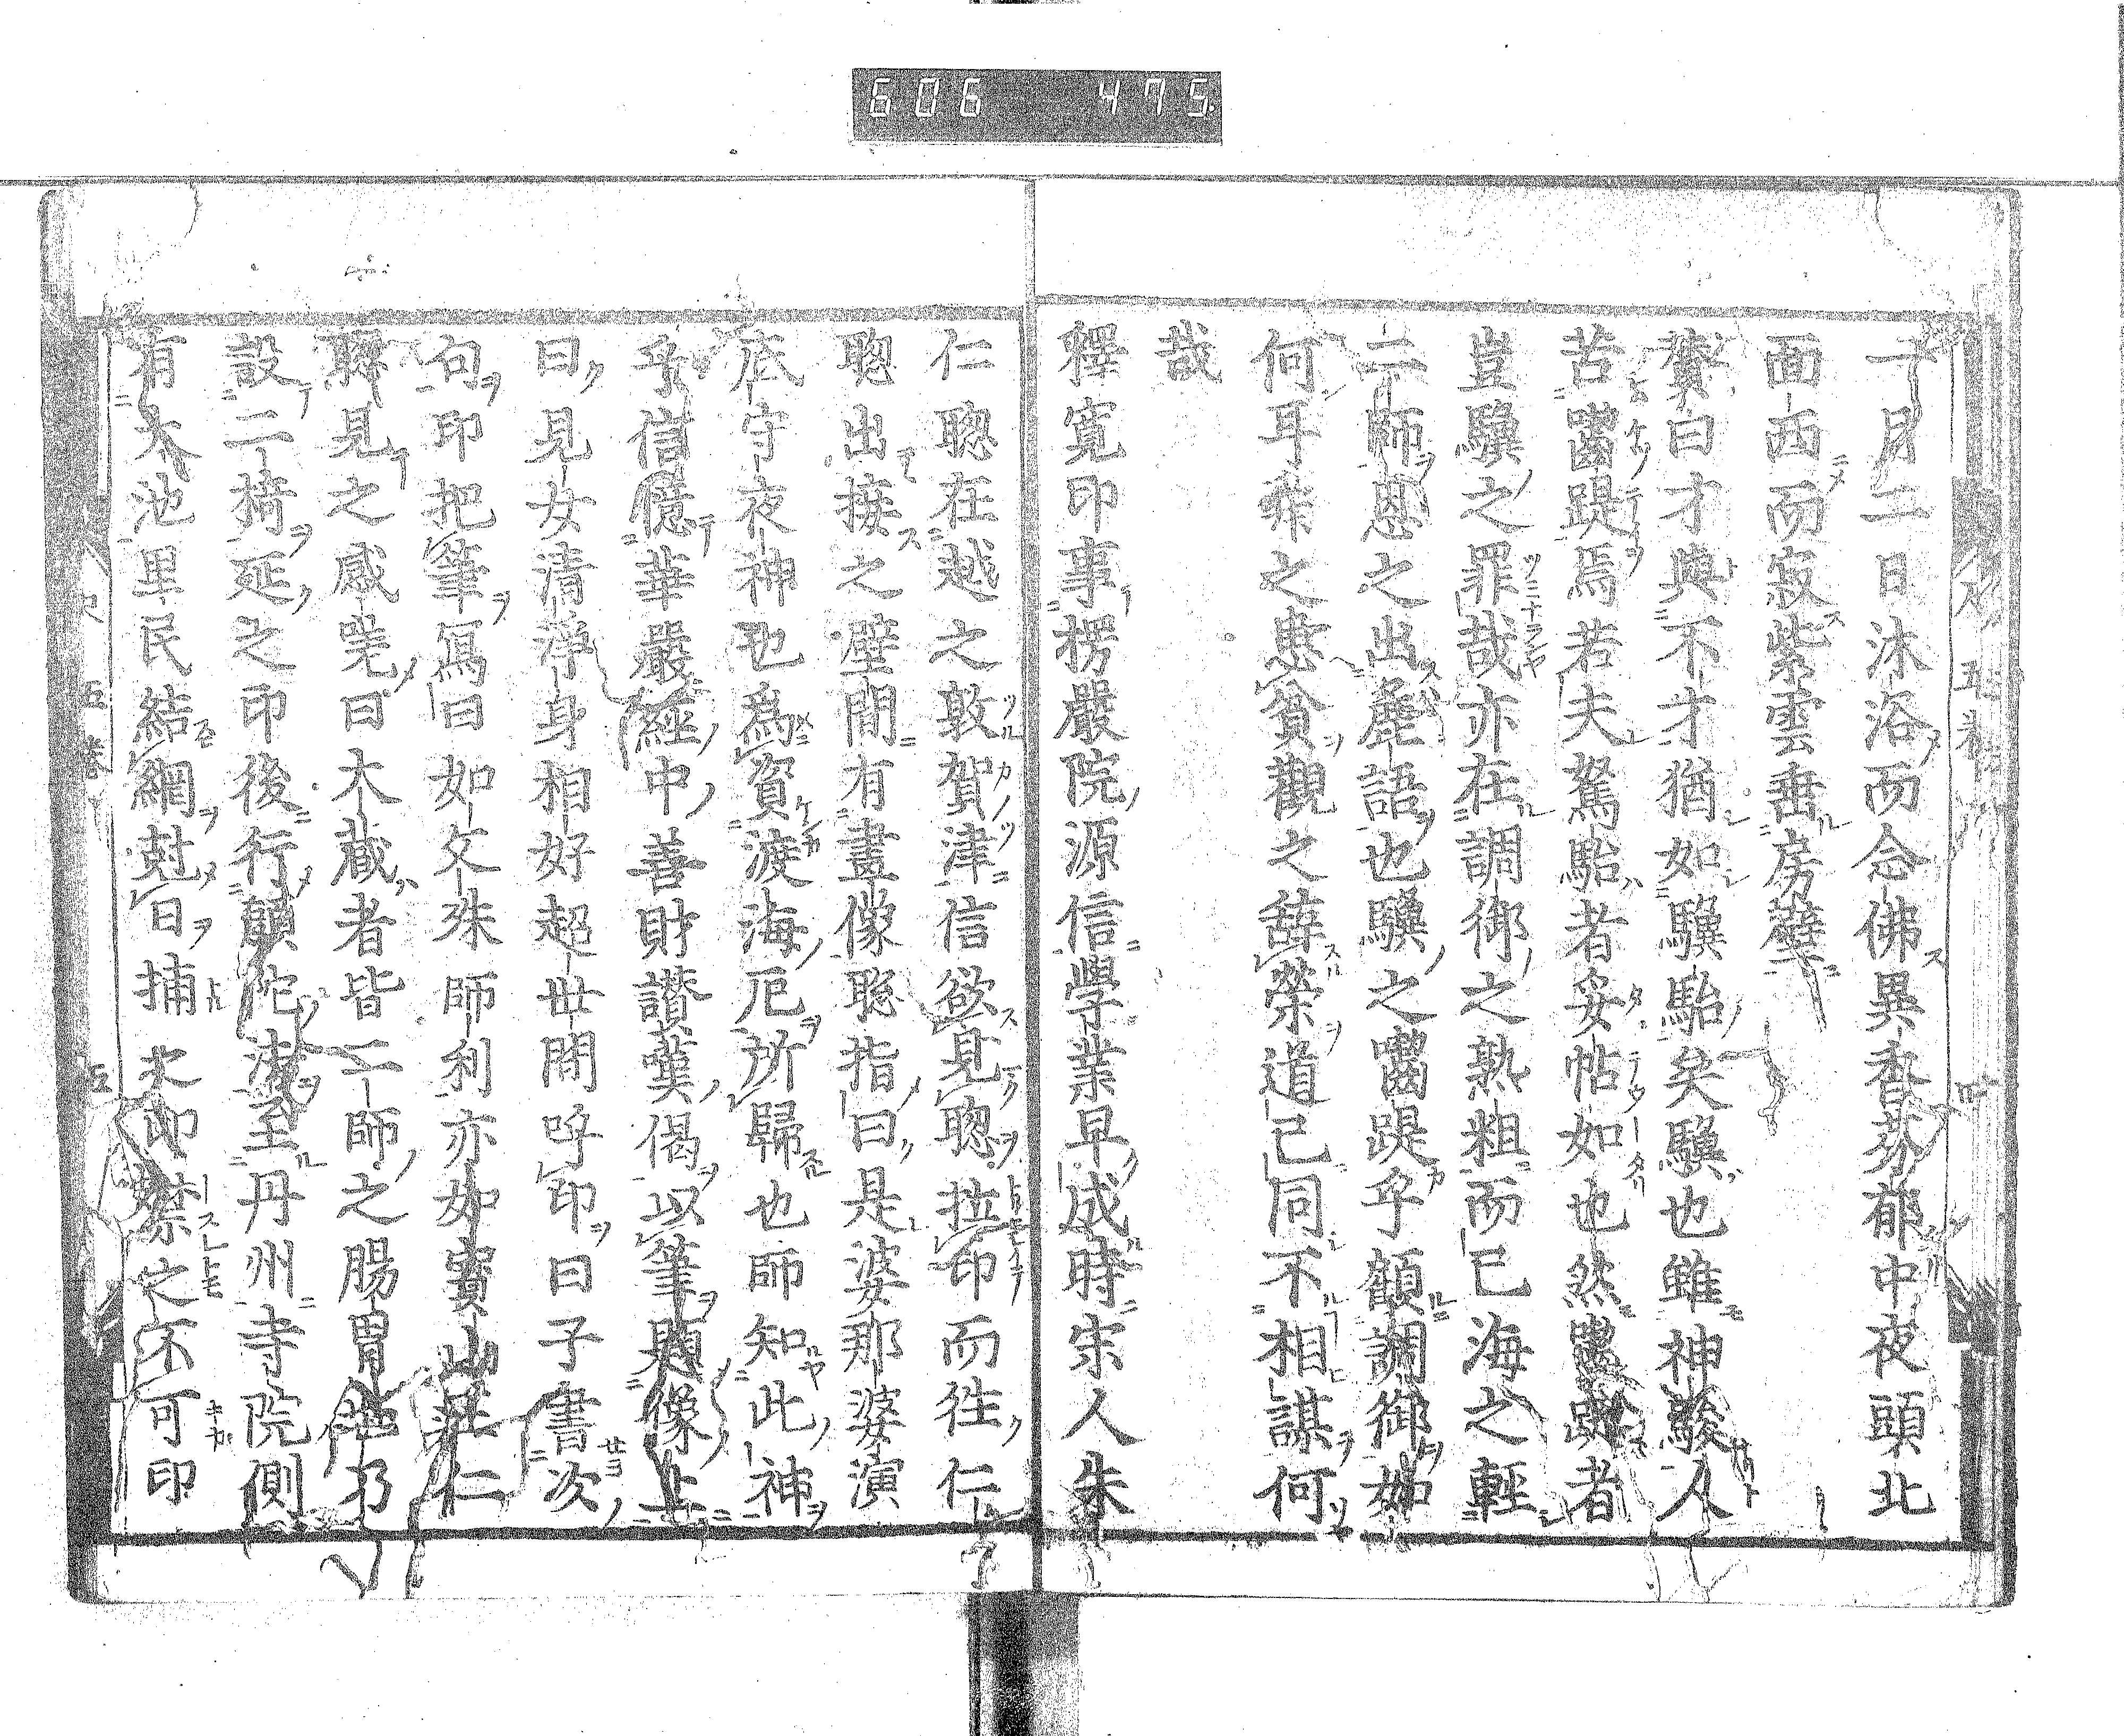 606 475
一月二日沐浴而念佛異香芬郁中夜頭北
面西而寂紫雲垂房壁
賛曰才與不才猶如驥駘矣驥也雖神駿人
苦嚙踶焉若夫駑駘者妥帖如也然蹤者
豈驥之罪哉亦在調御之熟粗而已海之輕
二師恩之出麁語也驥之嚙踶乎顧調御始
何耳舜之患貧觀之辭榮道已同不相謀何
哉
釋寛印事楞嚴院源信學業早成時宋人朱
仁聰在越之敦賀津信欲見聰拉印而往仁
聰出接之壁間有畫像聡指曰是婆那婆演
底守夜神也爲資渡海厄所歸也師知此神
乎信憶華嚴經中善財讃嘆偈以筆題像上
曰見女清淨身相好超世間呼印曰子書次
句印把筆寫曰如文殊師利亦如寳山王仁
聡見之感嘆曰大藏者皆二師之腸胃也乃
設二猗延之印後行頭陀法至丹州寺院側
有大池里民結網尅日捕次印禁之不可印
五巻 五